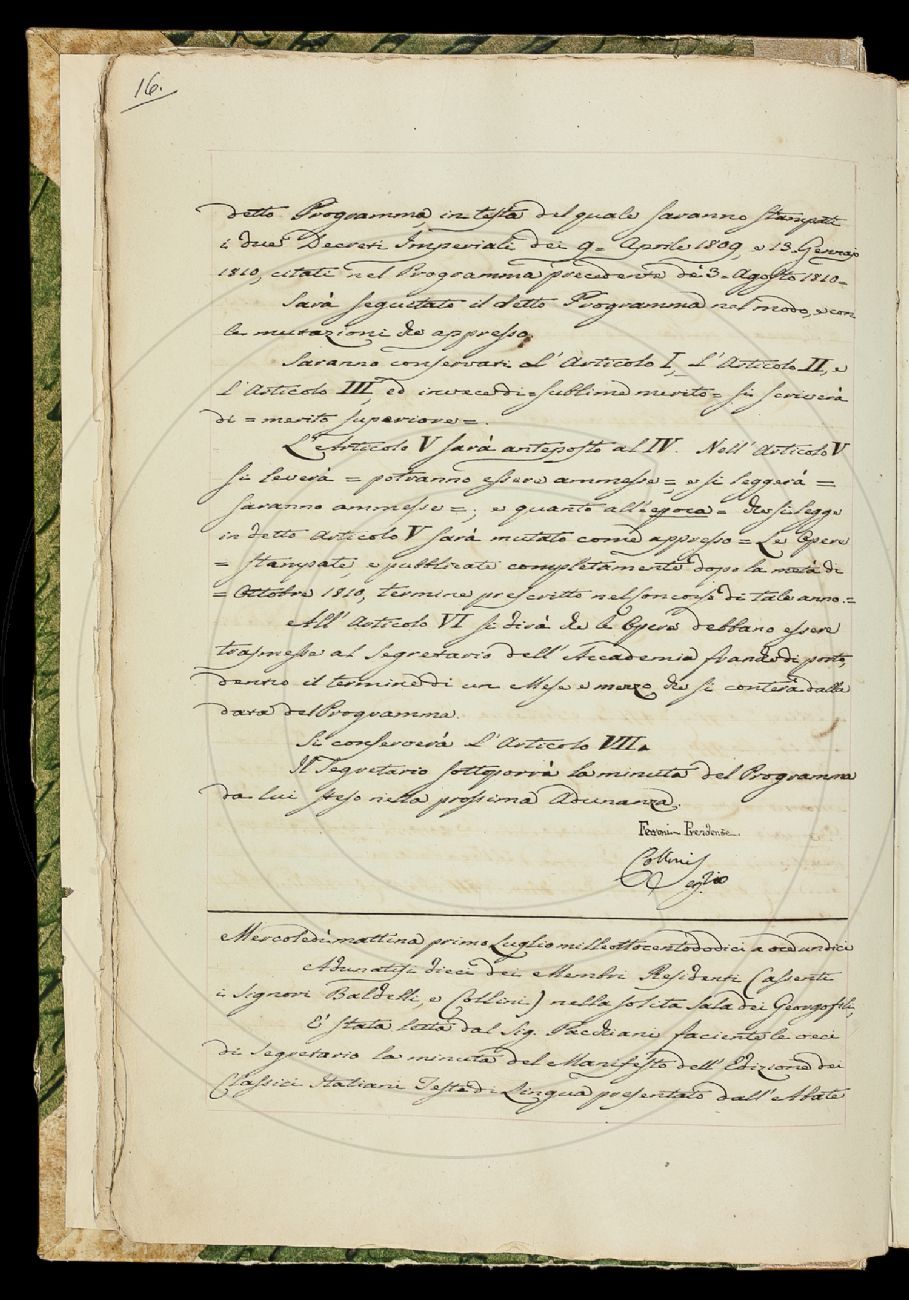 16.
detto Programma, in testa del quale saranno stampati
i due Decreti Imperiali dei 9. Aprile 1809, e 13. Gennajo
1810, citati nel Programma precedente de' 3. Agosto 1810.=
Sarà seguitato il detto Programma nel modo, e con
le mutazioni che appresso.
Saranno conservati L'Articolo I, L'Articolo II, e
L'Articolo III, ed invece di = sublime merito = si scriverà
di = merito superiore =.
L'Articolo V sarà anteposto al IV. Nell'Articolo V
si leverà = potranno essere ammesse =, e si leggerà =
saranno ammesse =; e quanto all'epoca = che si legge
in detto Articolo V sarà mutato come appresso = Le Opere
= stampate, e pubblicate completamente dopo la metà di
= Ottobre 1810, termine prescritto nel concorso di tale anno.=
All'Articolo VI si dirà che le Opere debbano essere
trasmesse al Segretario dell'Accademia franche di porto,
dentro il termine di un Mese e mezzo, che si conterà dalla
data del Programma.
Si conserverà L'Articolo VII.
Il Segretario sottoporrà la minuta del Programma
da lui steso nella prossima Adunanza.
Ferroni Presidente.
Collini
Seg.rio
Mercoledì mattina primo Luglio mille ottocento dodici a ore undici
Adunatisi dieci dei Membri Residenti (assenti
i Signori Baldelli, e Collini) nella solita Sala dei Georgofili,
È stata letta dal Sig. Pacchiani faciente le veci
di Segretario la minuta del Manifesto dell'Edizione dei
Classici Italiani Testi di Lingua presentato dall'Abate